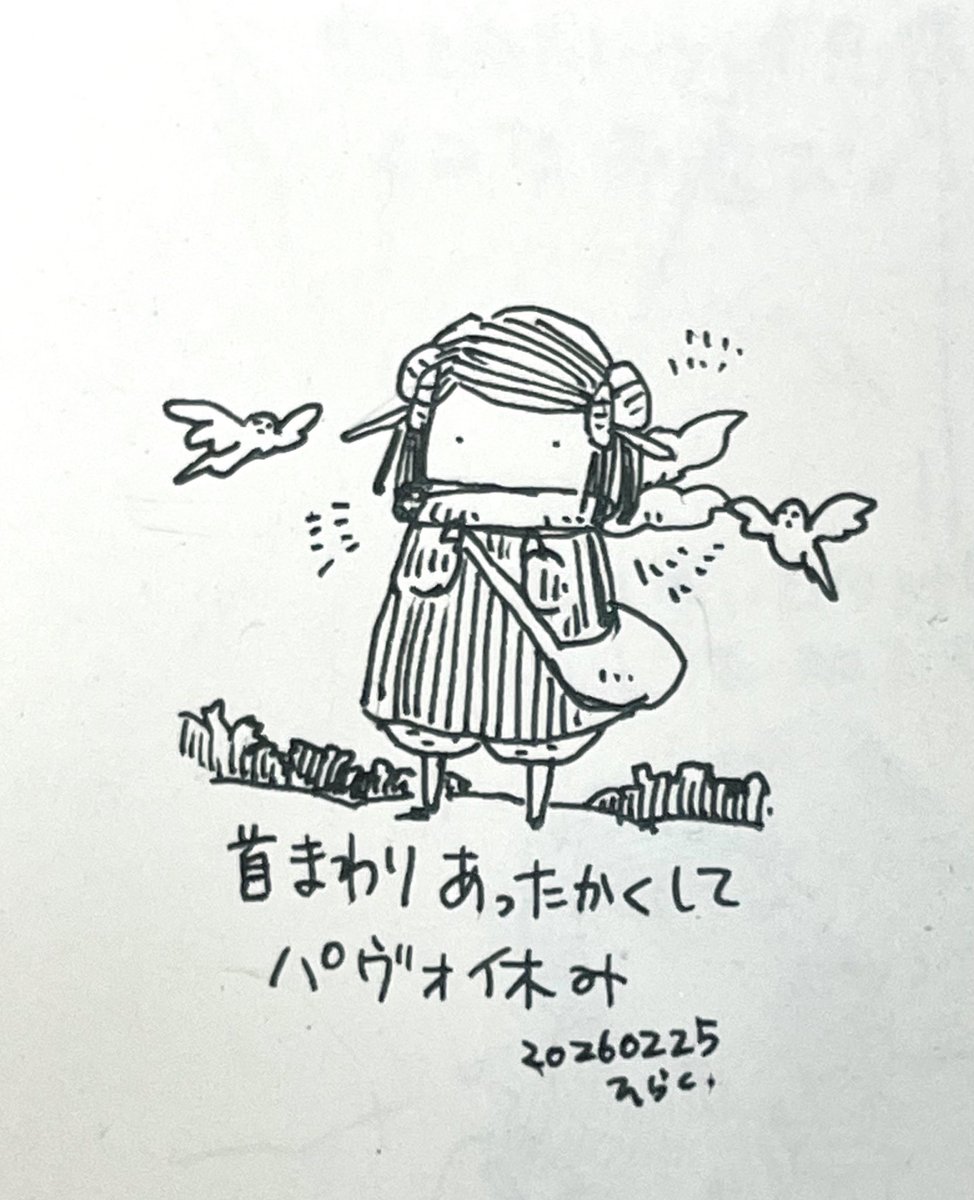 首まわりあったかくして
パヴォ休み
20260225